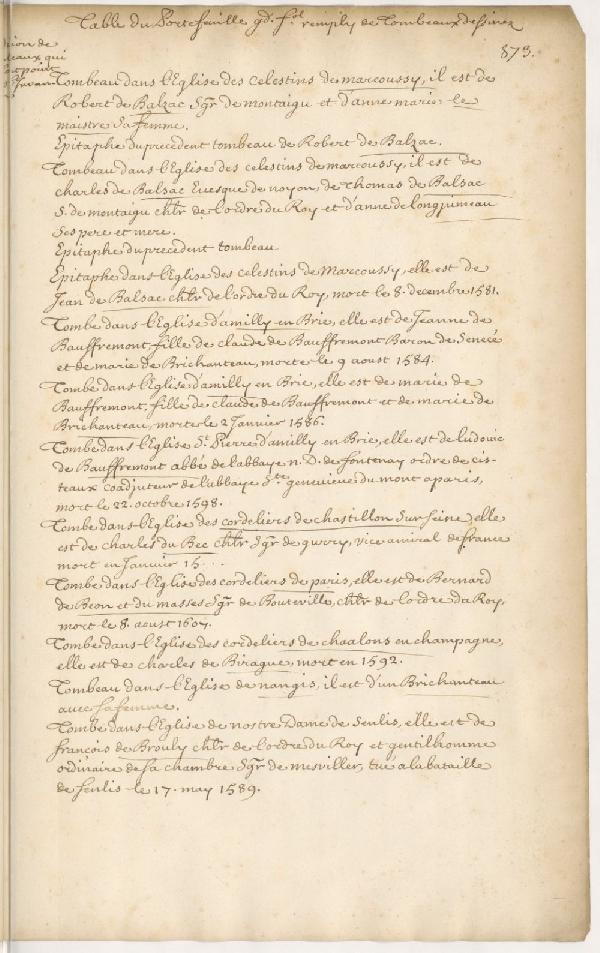 Table du Portefeuille gd. fol. remply de Tombeaux dessinez
873.
Tombeau dans l'Eglise des celestins de marcoussy, il est de
Robert de Balzac Sgr de montaigu et d'anne marie le
maistre sa femme.
Epitaphe du precedent tombeau de Robert de Balzac.
Tombeau dans l'Eglise des celestins de marcoussy, il est de
charles de Balsac Evesque de noyon, de Thomas de Balsac
S. de montaigu chlr de l'ordre du Roy et d'anne de longjumeau
ses pere et mere.
Epitaphe du precedent tombeau
Epitaphe dans l'Eglise des celestins de Marcoussy, elle est de
Jean de Balsac chlr de l'ordre du Roy, mort le 8. decembre 1581.
Tombe dans l'Eglise d'amilly en Brie, elle est de Jeanne de
Bauffremont, fille de claude de Bauffremont Baron de Seneçé
et de marie de Brichanteau, morte le 9 aoust 1584.
Tombe dans l'Eglise d'amilly en Brie, elle est de marie de
Bauffremont, fille de claude de Bauffremont et de marie de
Brichanteau, morte le 2 Janvier 1586.
Tombe dans l'Eglise St. Pierre d'amilly en Brie, elle est de ludovic
de Bauffremont abbé de l'abbaye n. D. de fontenay ordre de cis-
teaux coadjuteur de l'abbaye Ste genevieve du mont a paris,
mort le 22. octobre 1598.
Tombe dans l'Eglise des cordeliers de chastillon sur seine elle
est de charles du Bec chlr Sgr de vice amiral de france
mort en Janvier 15...
Tombe dans l'Eglise des cordeliers de paris, elle est de Bernard
de Beon et du masses Sgr de Bouteville, chlr de l'ordre du Roy,
mort le 8. aoust 1607.
Tombe dans l'Eglise des cordeliers de chaalons en champagne,
elle est de charles de Biragne, mort en 1592.
Tombeau dans l'Eglise de nangis, il est d'un Brichanteau
avec sa femme.
Tombe dans l'Eglise de nostre Dame de Senlis, elle est de
francois de Brouly chlr de l'ordre du Roy et gentilhomme
ordinaire de sa chambre Sgr de mesviller, tué a la bataille
de senlis le 17. may 1589.